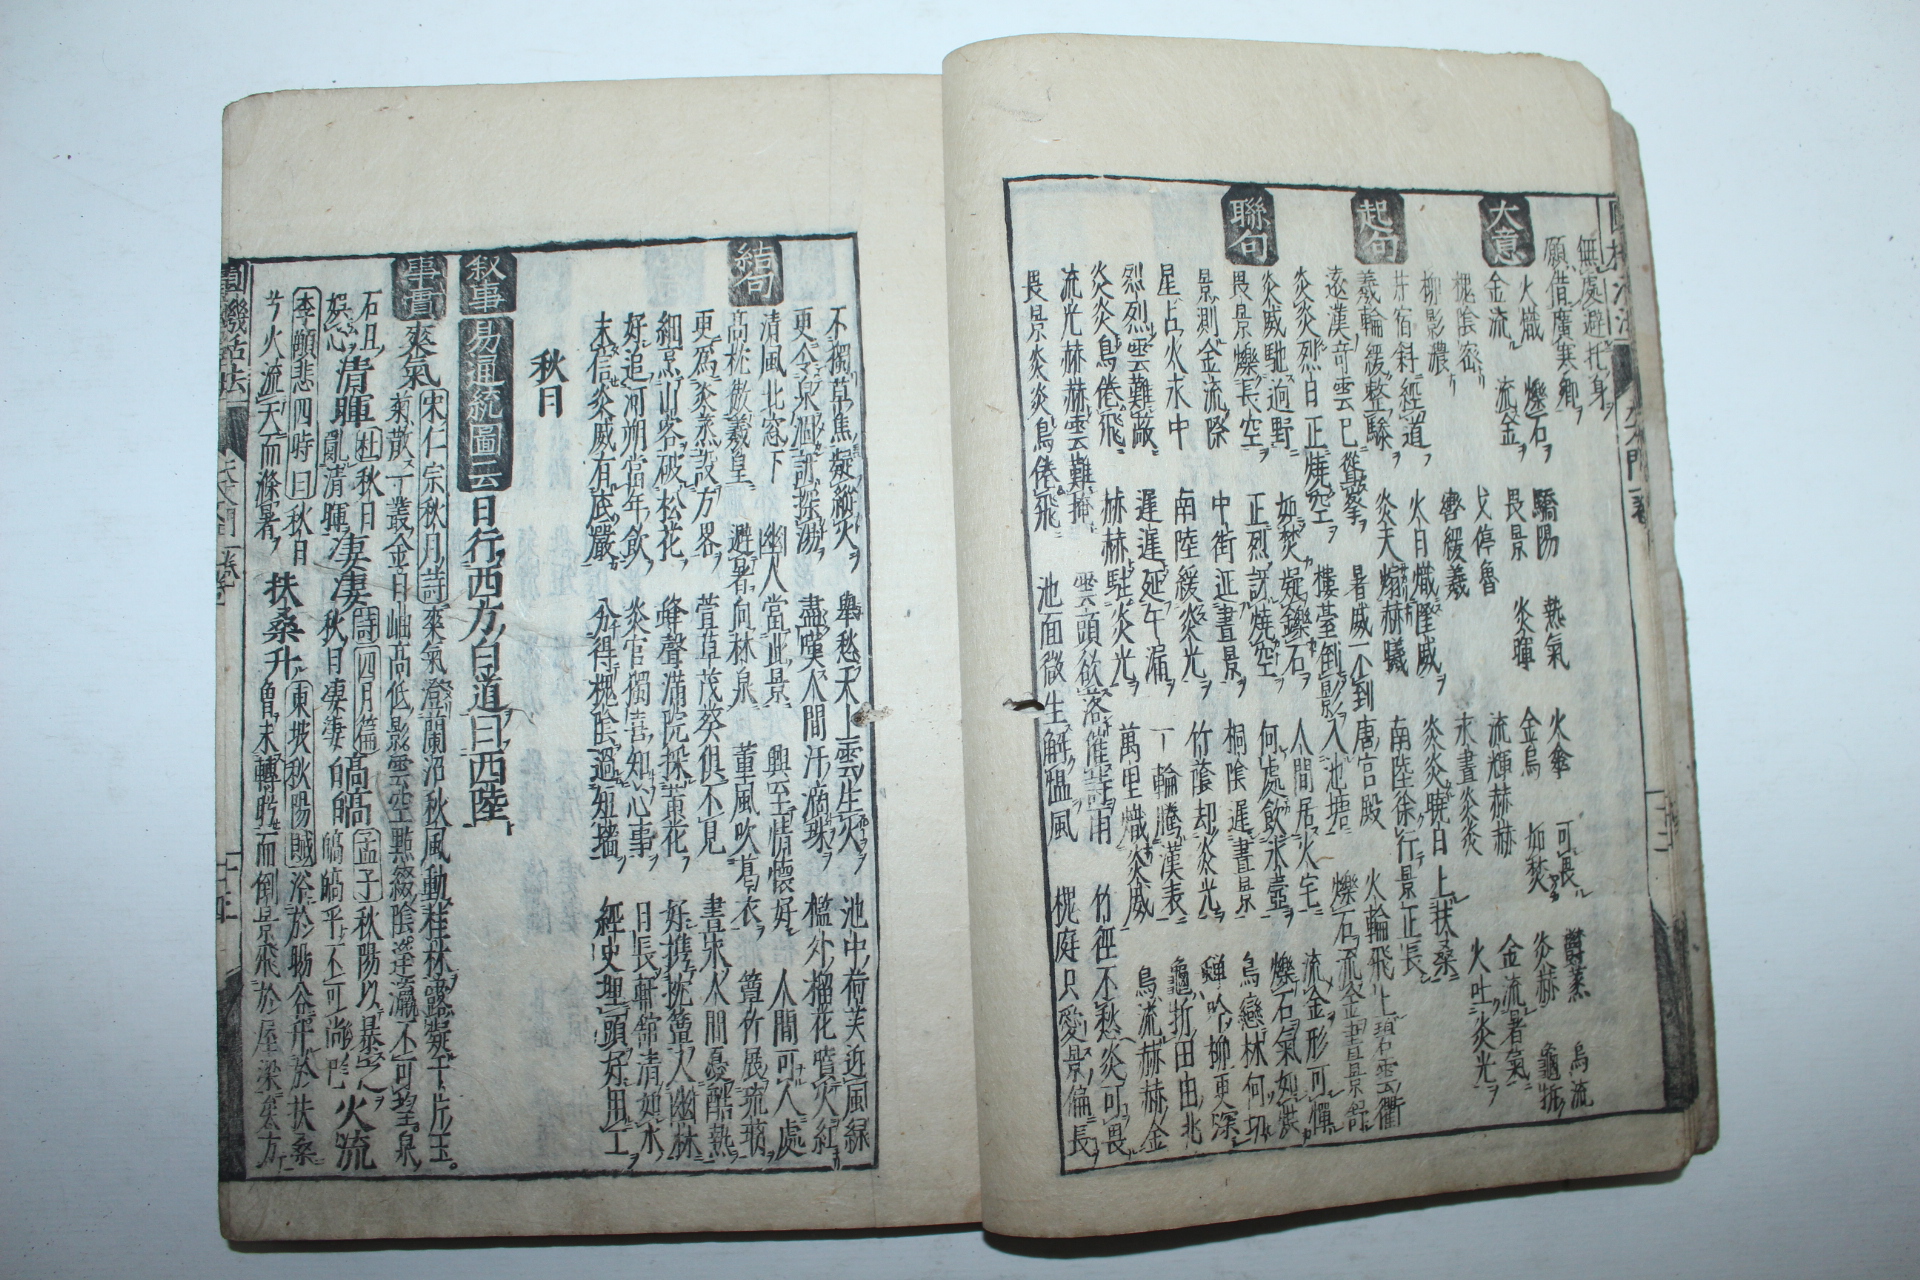 無處避托身
願借廣寒卿
大意
火熾 爍石 驕陽 熱氣 火傘 可畏 鬱蒸 烏流
金流 流金 畏景 炎暉 金烏 如焚 炎赫 龜拆
槐陰密 戈停魯 流輝赫赫 金流暑氣
柳影濃 轡緩羲 永晝炎炎 火吐炎光
起句
井宿斜經道 火日熾隆威 炎炎曉日上扶桑
羲輪緩整驂 炎天嫋赫曦 南陸徐行景正長
遠漢奇雲已從峯 暑威不到唐宮殿 火輪飛上碧雲衢
炎炎烈日正燒空 樓臺倒影入池塘 爍石流金晝景舒
聯句
炎威馳迥野 如焚疑鑠石 人間居火宅 流金形可憚
畏景爍長空 正烈訝燒空 何處飲氷壺 爍石氣如焚
景測金流際 中街正晝景 桐陰遲晝景 烏戀林何切
星占火永中 南陸緩炎光 竹蔭却炎光 蟬吟柳更深
烈烈雲難蔽 遲遲延午漏 一輪騰漢表 龜折田由北
炎炎鳥倦飛 赫赫駐炎光 萬里熾炎威 烏流赫赫金
流光赫赫雲難掩 雲頭欲落催詩雨 竹徑不愁炎可畏
畏景炎炎鳥倦飛 池面微生解慍風 槐庭只愛景偏長
不獨草焦疑縱火 舉愁天上雲生火 池中荷芙近風綠
更令泉涸訝探湯 盡嘆人間汗滴珠 檻外榴花噴火紅
結句
清風北窓下 幽人當此景 興至情懷好 人間可人處
高枕傲羲皇 避暑向林泉 董風吹葛衣 簟竹展琉璃
更爲炎蒸設方畧 萱草茂葵俱不見 書來人間憂酷熱
細烹山茗破松花 蜂聲滿院採黃花 好携枕簟入幽林
好追河朔當年飲 炎官獨喜知心事 日長軒館清如水
未信炎威有底嚴 分得槐陰過短墻 經史埋頭好用工
秋日
叙事 易通統圖云 日行西方白道曰西陸
事實 爽氣 宋仁宗秋月詩 爽氣澄蘭沼秋風動桂林露凝千片玉
菊散一叢金日岫高低影雲空點綴陰蓬瀛不可望泉
石且娯心 清暉 杜 秋日亂清暉 凄凄 詩四月篇 秋日凄凄 皜皜 孟子 秋陽以暴之皜皜乎不可尚已 火流
李顒悲四時曰 秋日兮火流天而滌暑 扶桑升 東坡秋陽賦 浴於暘谷升於扶桑
曾未轉盼而倒景飛於屋梁矣方
圓機活法 天文門 一卷 十三